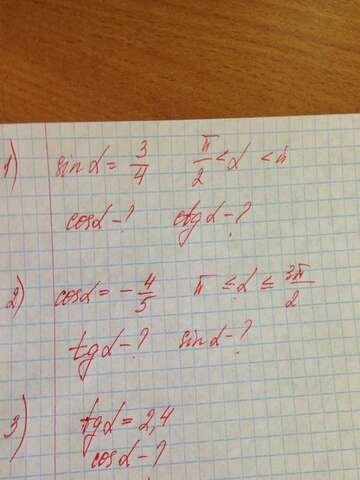 1) sinα = 3/4 π/2 < α < π
cosα - ? ctgα - ?
2) cosα = - 4/5 π ≤ α ≤ 3π/2
tgα - ? sinα - ?
3) tgα = 2,4
cosα - ?